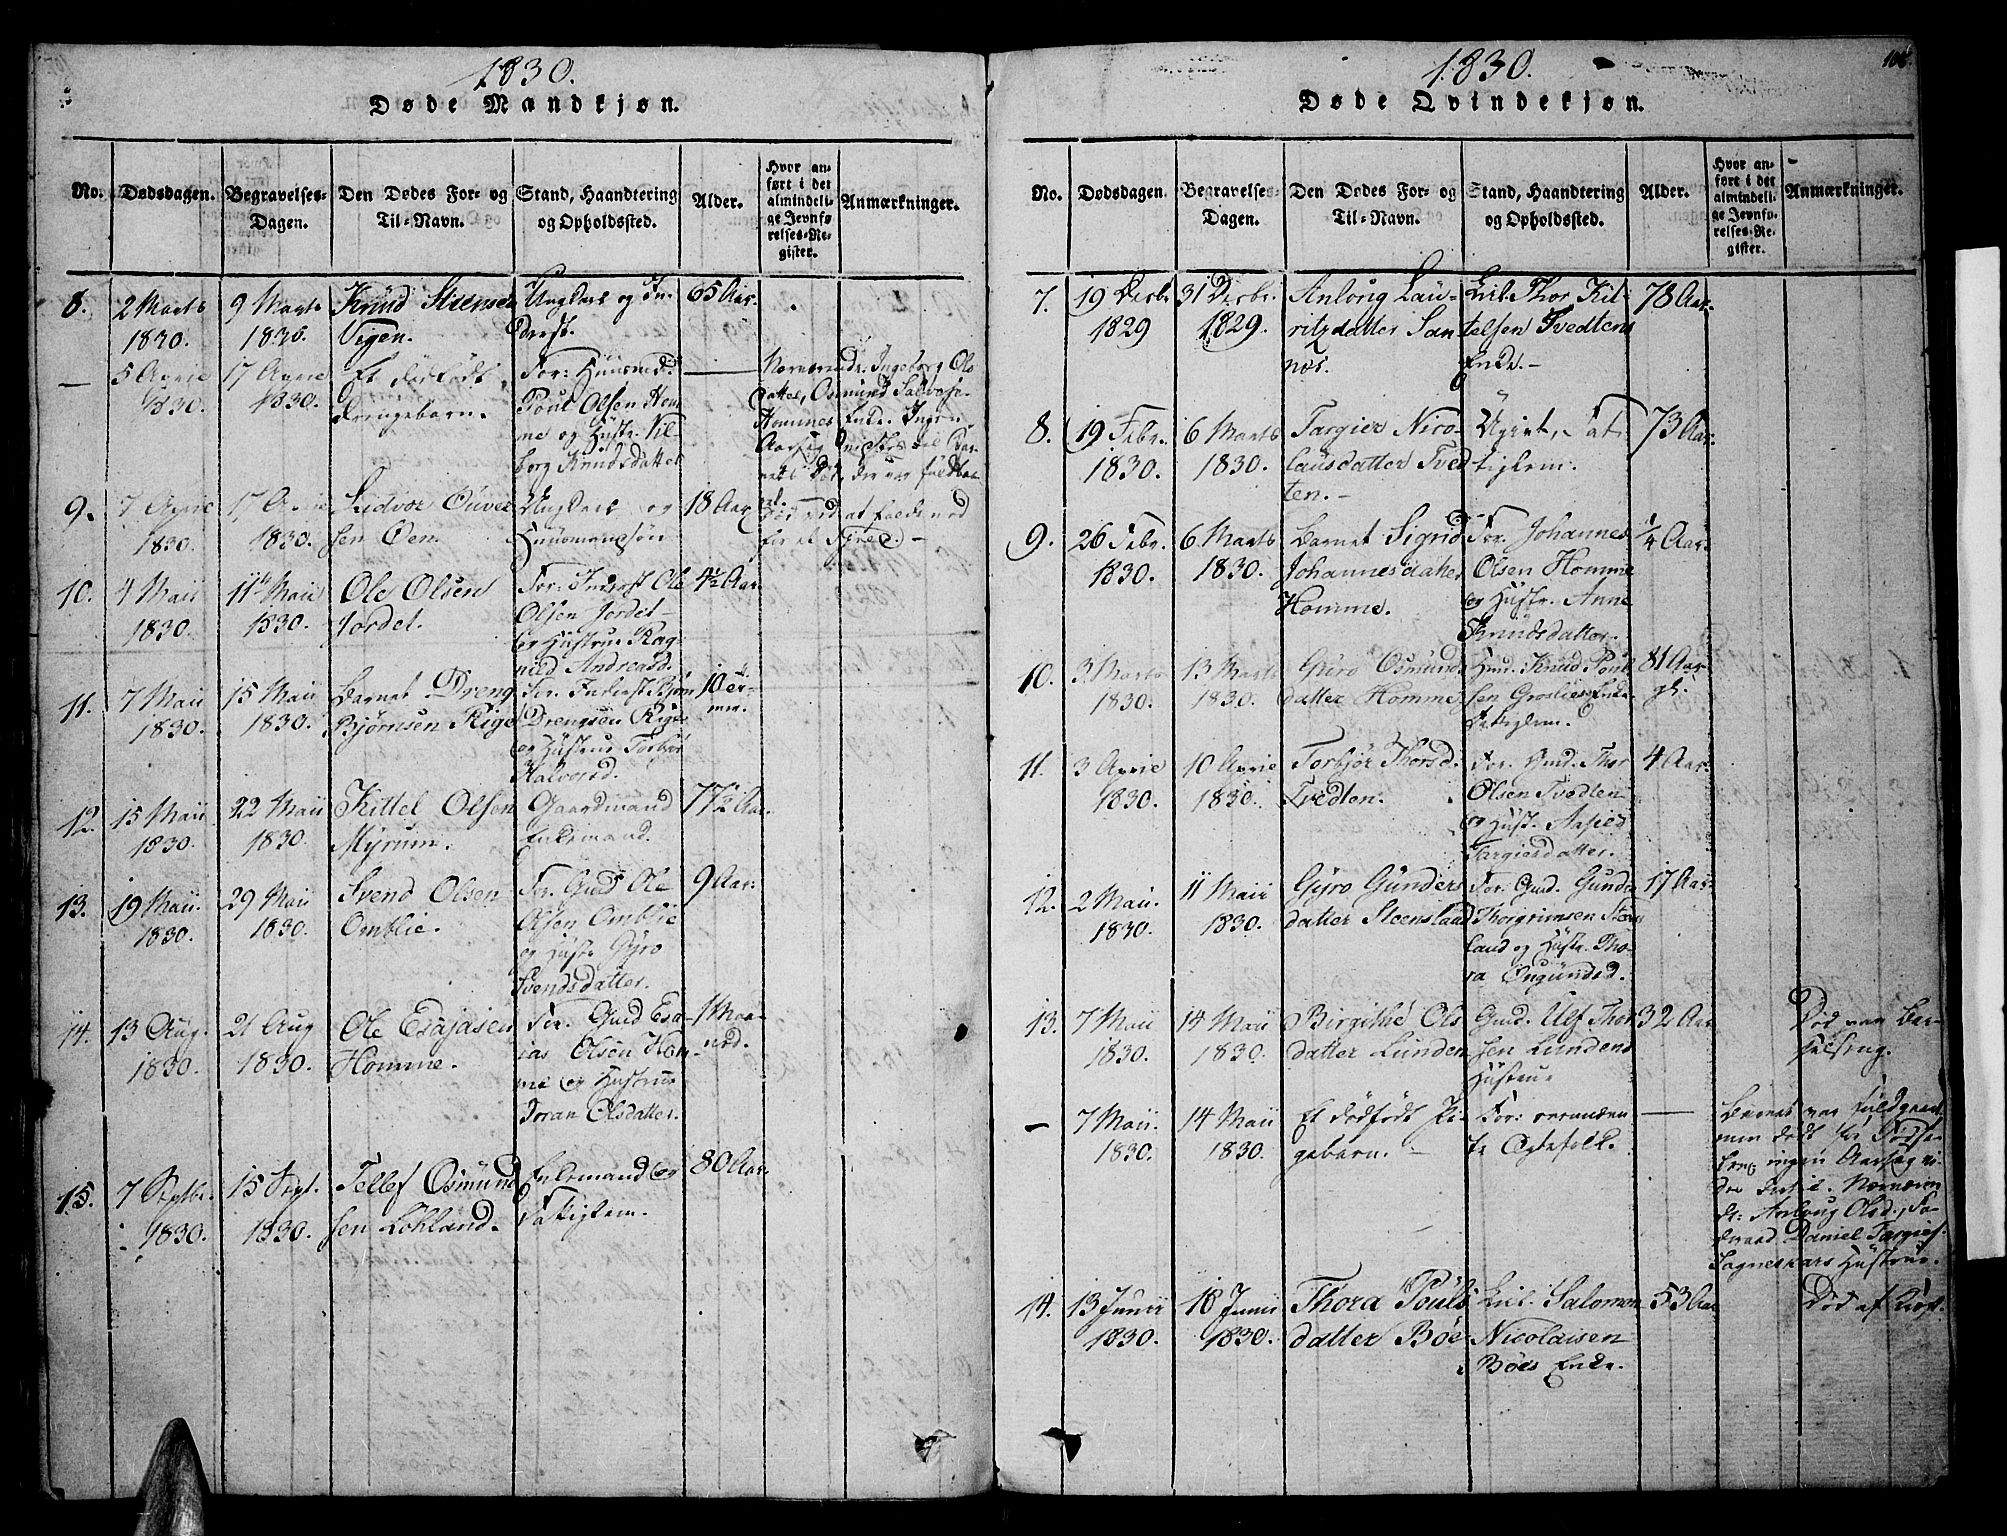 1830.
Døde Mandkjøn.
No.
Dødsdagen.
Begravelses-
Dagen.
Den Dødes For- og
Til-Navn.
Stand, Haandtering
og Opholdssted.
Alder.
Hvor an-
ført i det
almindeli-
ge Jevnfø-
relses-Re-
gister.
Anmærkninger.
8.
2 Marts
1830.
9 Marts
1830.
Knud Steensen
Vigen.
Ungkarl og In-
derst.
65 Aar.
—
5 April
1830.
17 April
1830.
Et dødfødt
Drengebarn.
For: Huusmd.
Poul Olsen Hom-
me og Hustr. Vil-
borg Knudsdatter
Nærværende: Ingeborg Ols
datter, Osmund Salvese
Hommes Enke. Ingen
9.
7 April
1830.
17 April
1830.
Sen Øen.
Ungkarl og
Huusmandssøn
18 Aar
Død ved at falde ned
10.
4 Maii
1830.
11 Maii
1830.
Ole Olsen
Jordet.
For: Inderst Ole
Olsen Jordet
og Hustrue Rag-
nild Andreasd.
4½ Aar.
11.
7 Maii
1830.
15 Maii
1830.
Barnet Dreng
Bjørnsen Rige
For. Inderst Bjørn
Drengsen Rige
og Hustrue Torbør
Halvorsd.
12.
15 Maii
1830.
22 Maii
1830.
Kittel Olsen
Myrum.
Gaardmand
Enkemand.
77½ Aar.
13.
19 Maii.
1830.
29 Maii
1830.
Svend Olsen
Omblie.
For. Gmd Ole
Olsen Omblie
og Hustr. Gyro
Svendsdatter.
9 Aar:
14.
13 Aug.
1830.
21 Aug
1830.
Ole Esajasen
Homme.
For. Gmd Esa-
ias Olsen Hom-
me og Hustrue
Joran Olsdatter.
1 Maa-
ned.
15.
7 Septbr.
1830.
15 Sept.
1830.
Tellef Osmund
sen Løhland.
Enkemand og
Fattiglem.
80 Aar.
1830.
Døde Qvindekjøn.
No.
Dødsdagen.
Begravelses-
Dagen.
Den Dødes For- og
Til-Navn.
Stand, Haandtering
og Opholdssted.
Alder.
Hvor an-
ført i det
almindeli-
ge Jevnfø-
relses-Re-
gister.
Anmærkninger.
7.
19 Decbr
1829
31 Decbr.
1829.
Anlaug Lau-
ritzdatter San-
nes.
Thor Kit-
telsen Tvedtens
Enke.
78 Aar.
8.
19 Febr.
1830.
6 Marts
1830.
Targier Nico-
lausdatter Tved
ten.
Ugivt, Fat-
tiglem.
73 Aar:
9.
26 Febr.
1830.
6 Marts
1830.
Barnet Sigrid
Johannesdatter
Homme.
For. Johannes
Olsen Homme
og Hustr. Anne
Knudsdatter.
¼ Aar.
10.
3 Marts
1830.
13 Marts
1830.
Gyro Osmunds
datter Homme
Hmd. Knud Poul
sen Groslies Enke
Fattiglem.
81 Aar
gl.
11.
3 April
1830.
10 April
1830.
Torbjør Thorsd.
Tvedten.
For. Gmd. Thor
Olsen Tvedten
og Hustr. Aasled
Targiersdatter.
4 Aar.
12.
2 Maii.
1830.
11 Maii
1830.
Gyro Gunders
datter Steensland
For. Gmd. Gunder
Thorgrimsen Steens
land og Hustr. Tho-
ra Ongundsd.
17 Aar
13.
7 Maii
1830.
14 Maii
1830.
Birgithe Ols
datter Lunden
Gmd. Ulf Thor
sen Lundens
Hustrue
32 Aar
Død paa Bar-
selseng.
—
7 Maii.
1830.
14 Maii
1830.
Et dødfødt Pi-
gebarn.
For: ovennævn
te Ægtefolk.
—
Barnet var fuldbaaret
men dødt før Fødse-
len, ingen Aarsag vi-
des dertil. Nærværen
de: Anlaug Olsd.
Daniel Targies.
Sagneskars Hustrue.
14.
13 Junii
1830.
18 Junii
1830.
Thora Pouls
datter Bøe
Salomon
Nicolaisen
Bøes Enke.
53 Aar